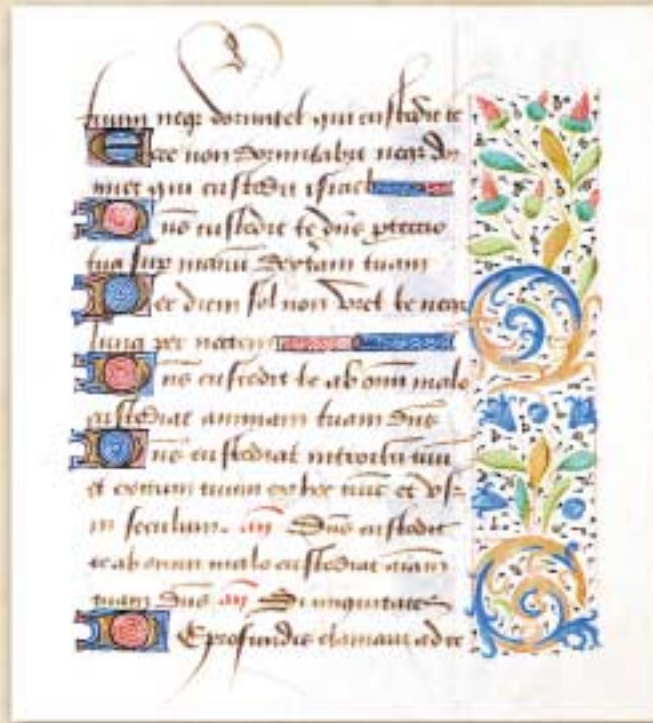 tuum neqz dormitet qui custodit te
Ecce non dormitabit neqz dor
miet qui custodit israel
Dns custodit te dns ptectio
tua sup manu dexteram tuam
Per diem sol non vret te neqz
luna per noctem
Dns custodit te ab omni malo
custodiat animam tuam dns
Dns custodiat introitu tuu
et exitum tuum ex hoc nuc et vsz
in seculum. an Dns custodit
te ab omni malo custodiat aiam
tuam dns an Si iniquitates
De profundis clamaui ad te